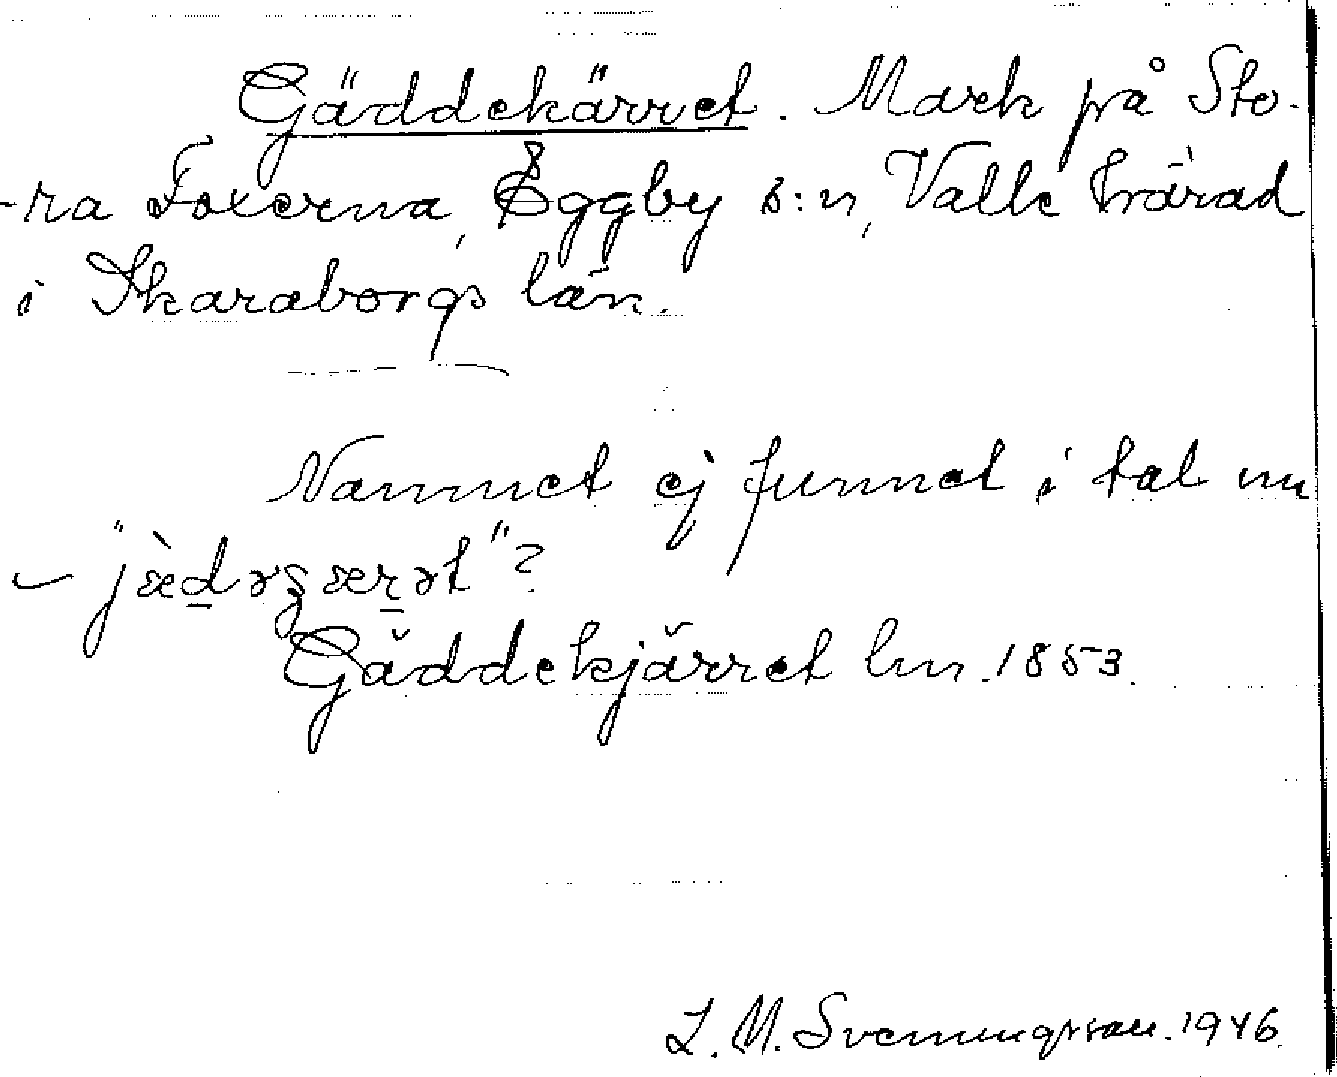 Gäddekärret. Mark på Sto-
-ra Foxerna, Eggby s:n, Valle härad
i Skaraborgs län.
Namnet ej funnet i tal nu
– "jæ̀dəʒærət"?
Gäddekjärret lm. 1853.
L. M. Svenungsson. 1946.